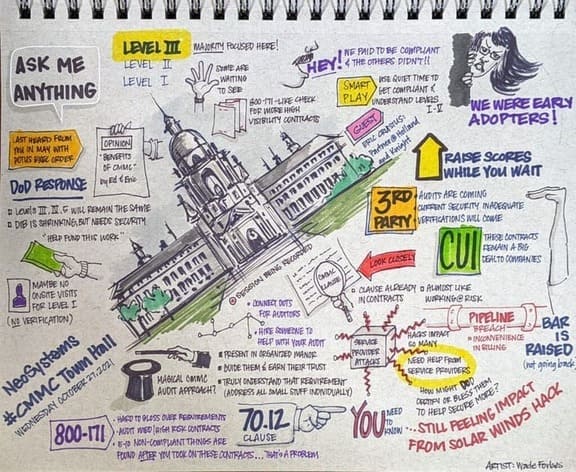 ASK ME
ANYTHING
LEVEL III MAJORITY FOCUSED HERE!
LEVEL II
LEVEL I
SOME ARE
WAITING
TO SEE
800-171-LIKE CHECK
FOR MORE HIGH
VISIBILITY CONTRACTS
HEY! WE PAID TO BE COMPLIANT
& THE OTHERS DIDN'T!!
SMART
PLAY
USE QUIET TIME TO
GET COMPLIANT &
UNDERSTAND LEVELS
I-V
WE WERE EARLY
ADOPTERS!
GUEST
ERIC
Partner @ Holland
and Knight
LAST HEARD FROM
YOU IN MAY WITH
POTUS EXEC ORDER
OPINION
"BENEFITS
OF CMMC"
by Ed & Eric
DoD RESPONSE
LEVELS III, IV, 5 WILL REMAIN THE SAME
DIB IS SHRINKING, BUT NEEDS SECURITY
"HELP FUND THIS WORK"
MAYBE NO
ONSITE VISITS
FOR LEVEL I
(NO VERIFICATION)
RAISE SCORES
WHILE YOU WAIT
3RD
PARTY
AUDITS ARE COMING
CURRENT SECURITY INADEQUATE
VERIFICATIONS WILL COME
CUI
THESE CONTRACTS
REMAIN A BIG
DEAL TO COMPANIES
SESSION BEING RECORDED
CMMC
CLAUSE
LOOK CLOSELY
CLAUSE ALREADY
IN CONTRACTS
ALMOST LIKE
WORKING @ RISK
CONNECT DOTS
FOR AUDITORS
HIRE SOMEONE TO
HELP WITH YOUR AUDIT
PRESENT IN ORGANIZED MANOR
GUIDE THEM & EARN THEIR TRUST
TRULY UNDERSTAND THAT REQUIREMENT
(ADDRESS ALL SMALL STUFF INDIVIDUALLY)
MAGICAL CMMC
AUDIT APPROACH?
SERVICE
PROVIDER
ATTACKS
HACKS IMPACT
SO MANY
NEED HELP FROM
SERVICE PROVIDERS
HOW MIGHT DOD
CERTIFY OR BLESS THEM
TO HELP SECURE MORE?
PIPELINE
BREACH
INCONVENIENCE
IN BILLING
BAR IS
RAISED
(not going back)
NeoSystems
#CMMC Town Hall
WEDNESDAY OCTOBER 27, 2021
800-171
HARD TO GLOSS OVER REQUIREMENTS
AUDIT HIGH RISK CONTRACTS
NON-COMPLIANT THINGS ARE
FOUND AFTER YOU TOOK ON THESE CONTRACTS...THAT'S A PROBLEM
70.12
CLAUSE
YOU NEED
TO
KNOW
...STILL FEELING IMPACT
FROM SOLAR WINDS HACK
ARTIST: Wade Forbes